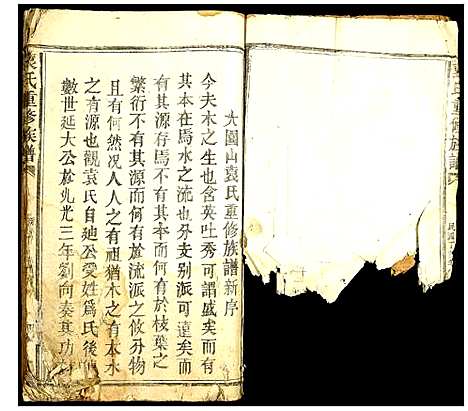 大園山袁氏重修族譜新序
今夫木之生也含英吐秀可謂盛矣而
其本在焉水之流也分支別派可遠矣而
有其源存焉不有其本而何有於枝葉之
繁衍不有其源而何有於流派之攸分物
且有然况人人之有祖猶木之有本水
之有源也觀袁氏自廸公受姓爲氏後
數世延大公於光三年劉向奏其功
袁氏重修族譜
氏重修族譜